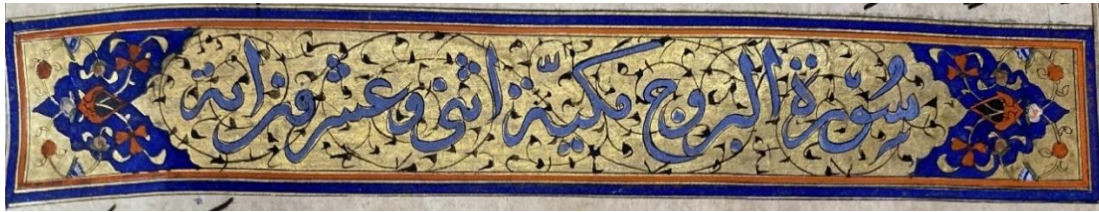 سُوْرَة البروج مكيّة اثنى وعشرون اية